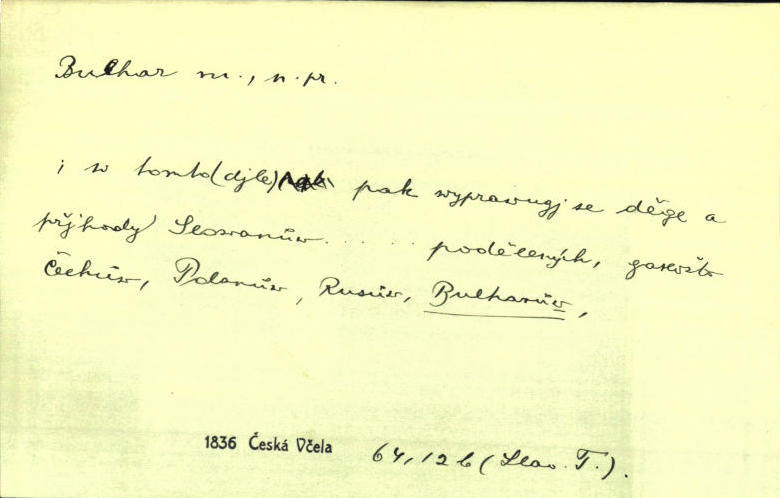 Bulhar m., n. pr.
i w tomto (djle) pak wyprawugj se děge a
přjhody Slowanůw . . . . . podělených, gakožto
Čechůw, Polanůw, Rusůw, Bulharůw,
1836 Česká Včela 64, 12 b (Slav. T.).